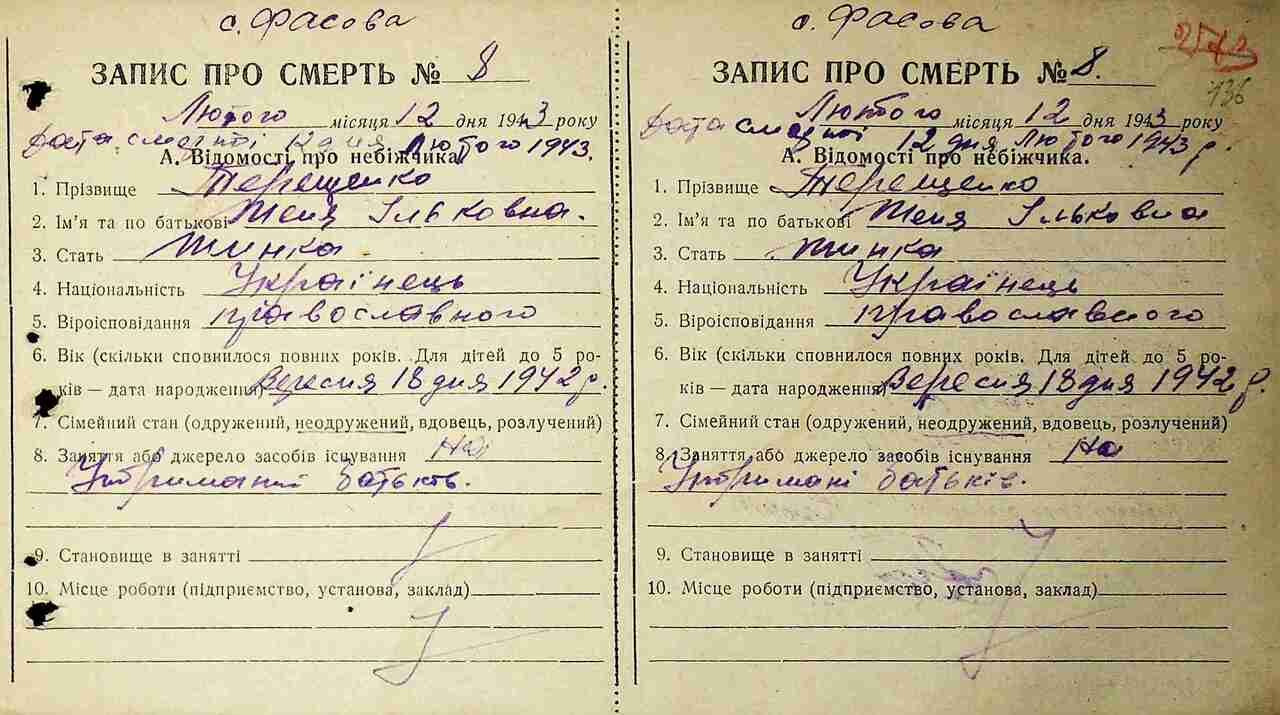 с. Фасова
ЗАПИС ПРО СМЕРТЬ № 8
Лютого місяця 12 дня 1943 року
Дата смерті 12 дня Лютого 1943.
А. Відомості про небіжчика.
1. Прізвище Терещенко
2. Ім'я та по батькові Женя Ільковна.
3. Стать жінка
4. Національність Українець
5. Віроісповідання православного
6. Вік (скільки сповнилося повних років. Для дітей до 5 ро-
ків — дата народження) Вересня 18 дня 1942 р.
7. Сімейний стан (одружений, неодружений, вдовець, розлучений)
8. Заняття або джерело засобів існування На
Утриманні батьків.
9. Становище в занятті
10. Місце роботи (підприємство, установа, заклад)
с. Фасова
136
ЗАПИС ПРО СМЕРТЬ № 8.
Лютого місяця 12 дня 1943 року
Дата смерті 12 дня Лютого 1943 р.
А. Відомості про небіжчика.
1. Прізвище Терещенко
2. Ім'я та по батькові Женя Ільковна
3. Стать жінка
4. Національність Українець
5. Віроісповідання православного
6. Вік (скільки сповнилося повних років. Для дітей до 5 ро-
ків — дата народження) Вересня 18 дня 1942 р.
7. Сімейний стан (одружений, неодружений, вдовець, розлучений)
8. Заняття або джерело засобів існування На
Утримані батьків.
9. Становище в занятті
10. Місце роботи (підприємство, установа, заклад)